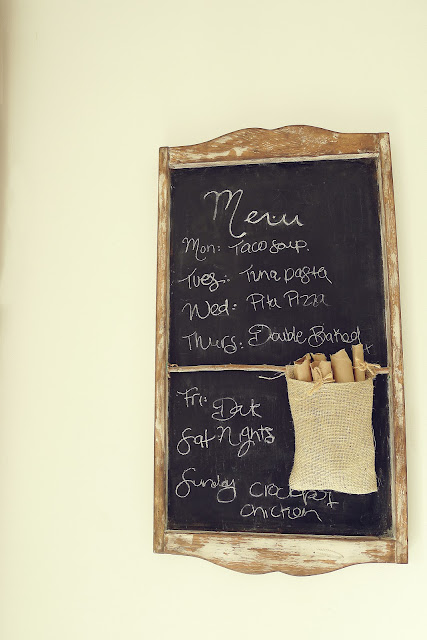 Menu
Mon: Taco soup.
Tues: Tuna pasta
Wed: Pita Pizza
Thurs: Double Baked
Fri: Date
Sat Nights
Sunday Crockpot
chicken